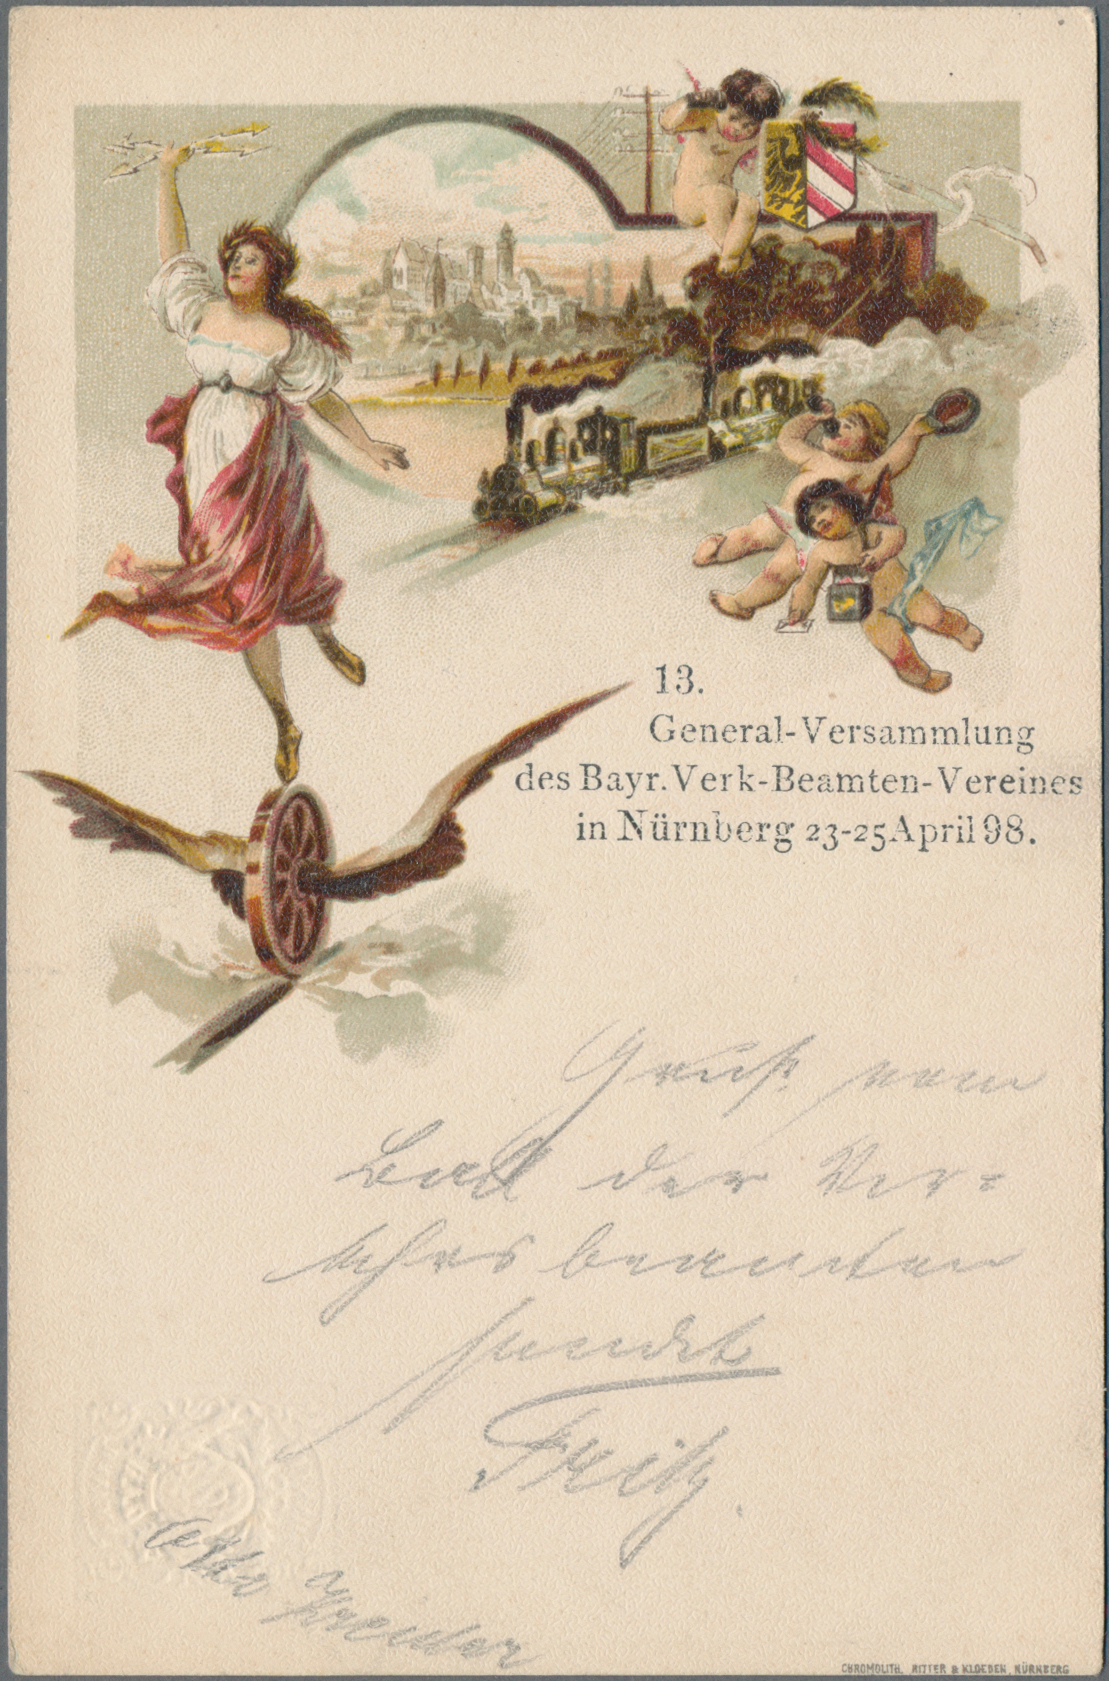 13.
General-Versammlung
des Bayr. Verk-Beamten-Vereines
in Nürnberg 23-25 April 98.
Gruß vom
Ball der Ver-
kehrsbeamten
sendet
Fritz.
Otto
CHROMOLITH. RITTER & KLOEDEN, NÜRNBERG